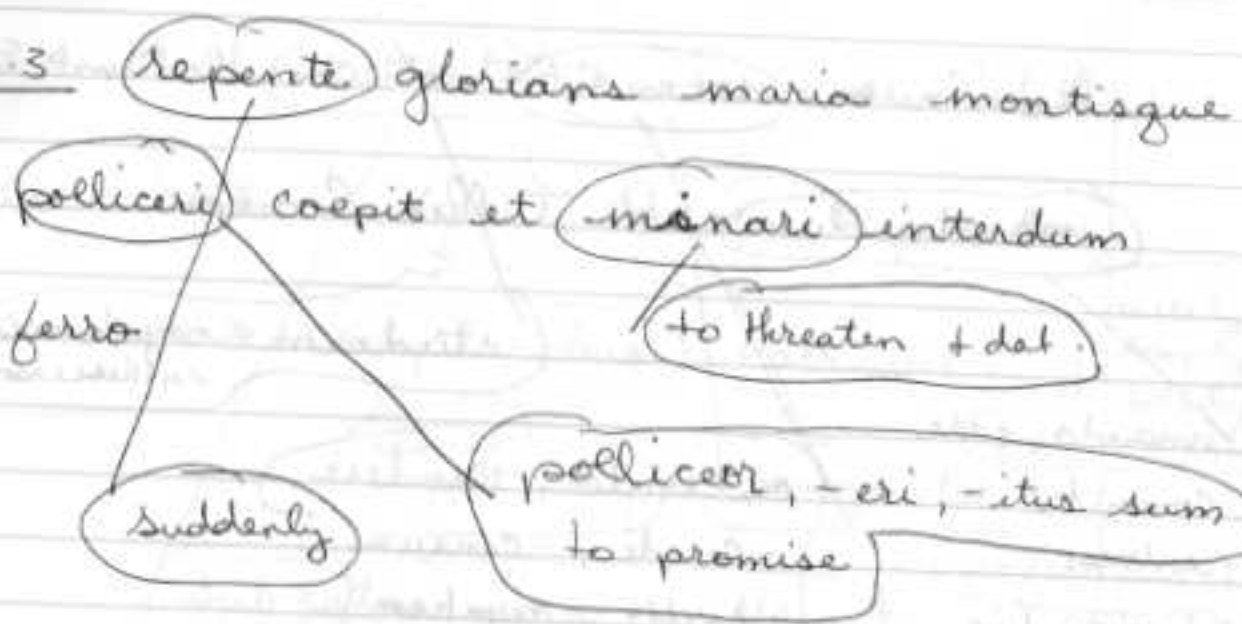 3 repente glorians maria montisque
polliceri coepit et minari interdum
ferro
to threaten + dat.
suddenly
polliceor, -eri, -itus sum
to promise